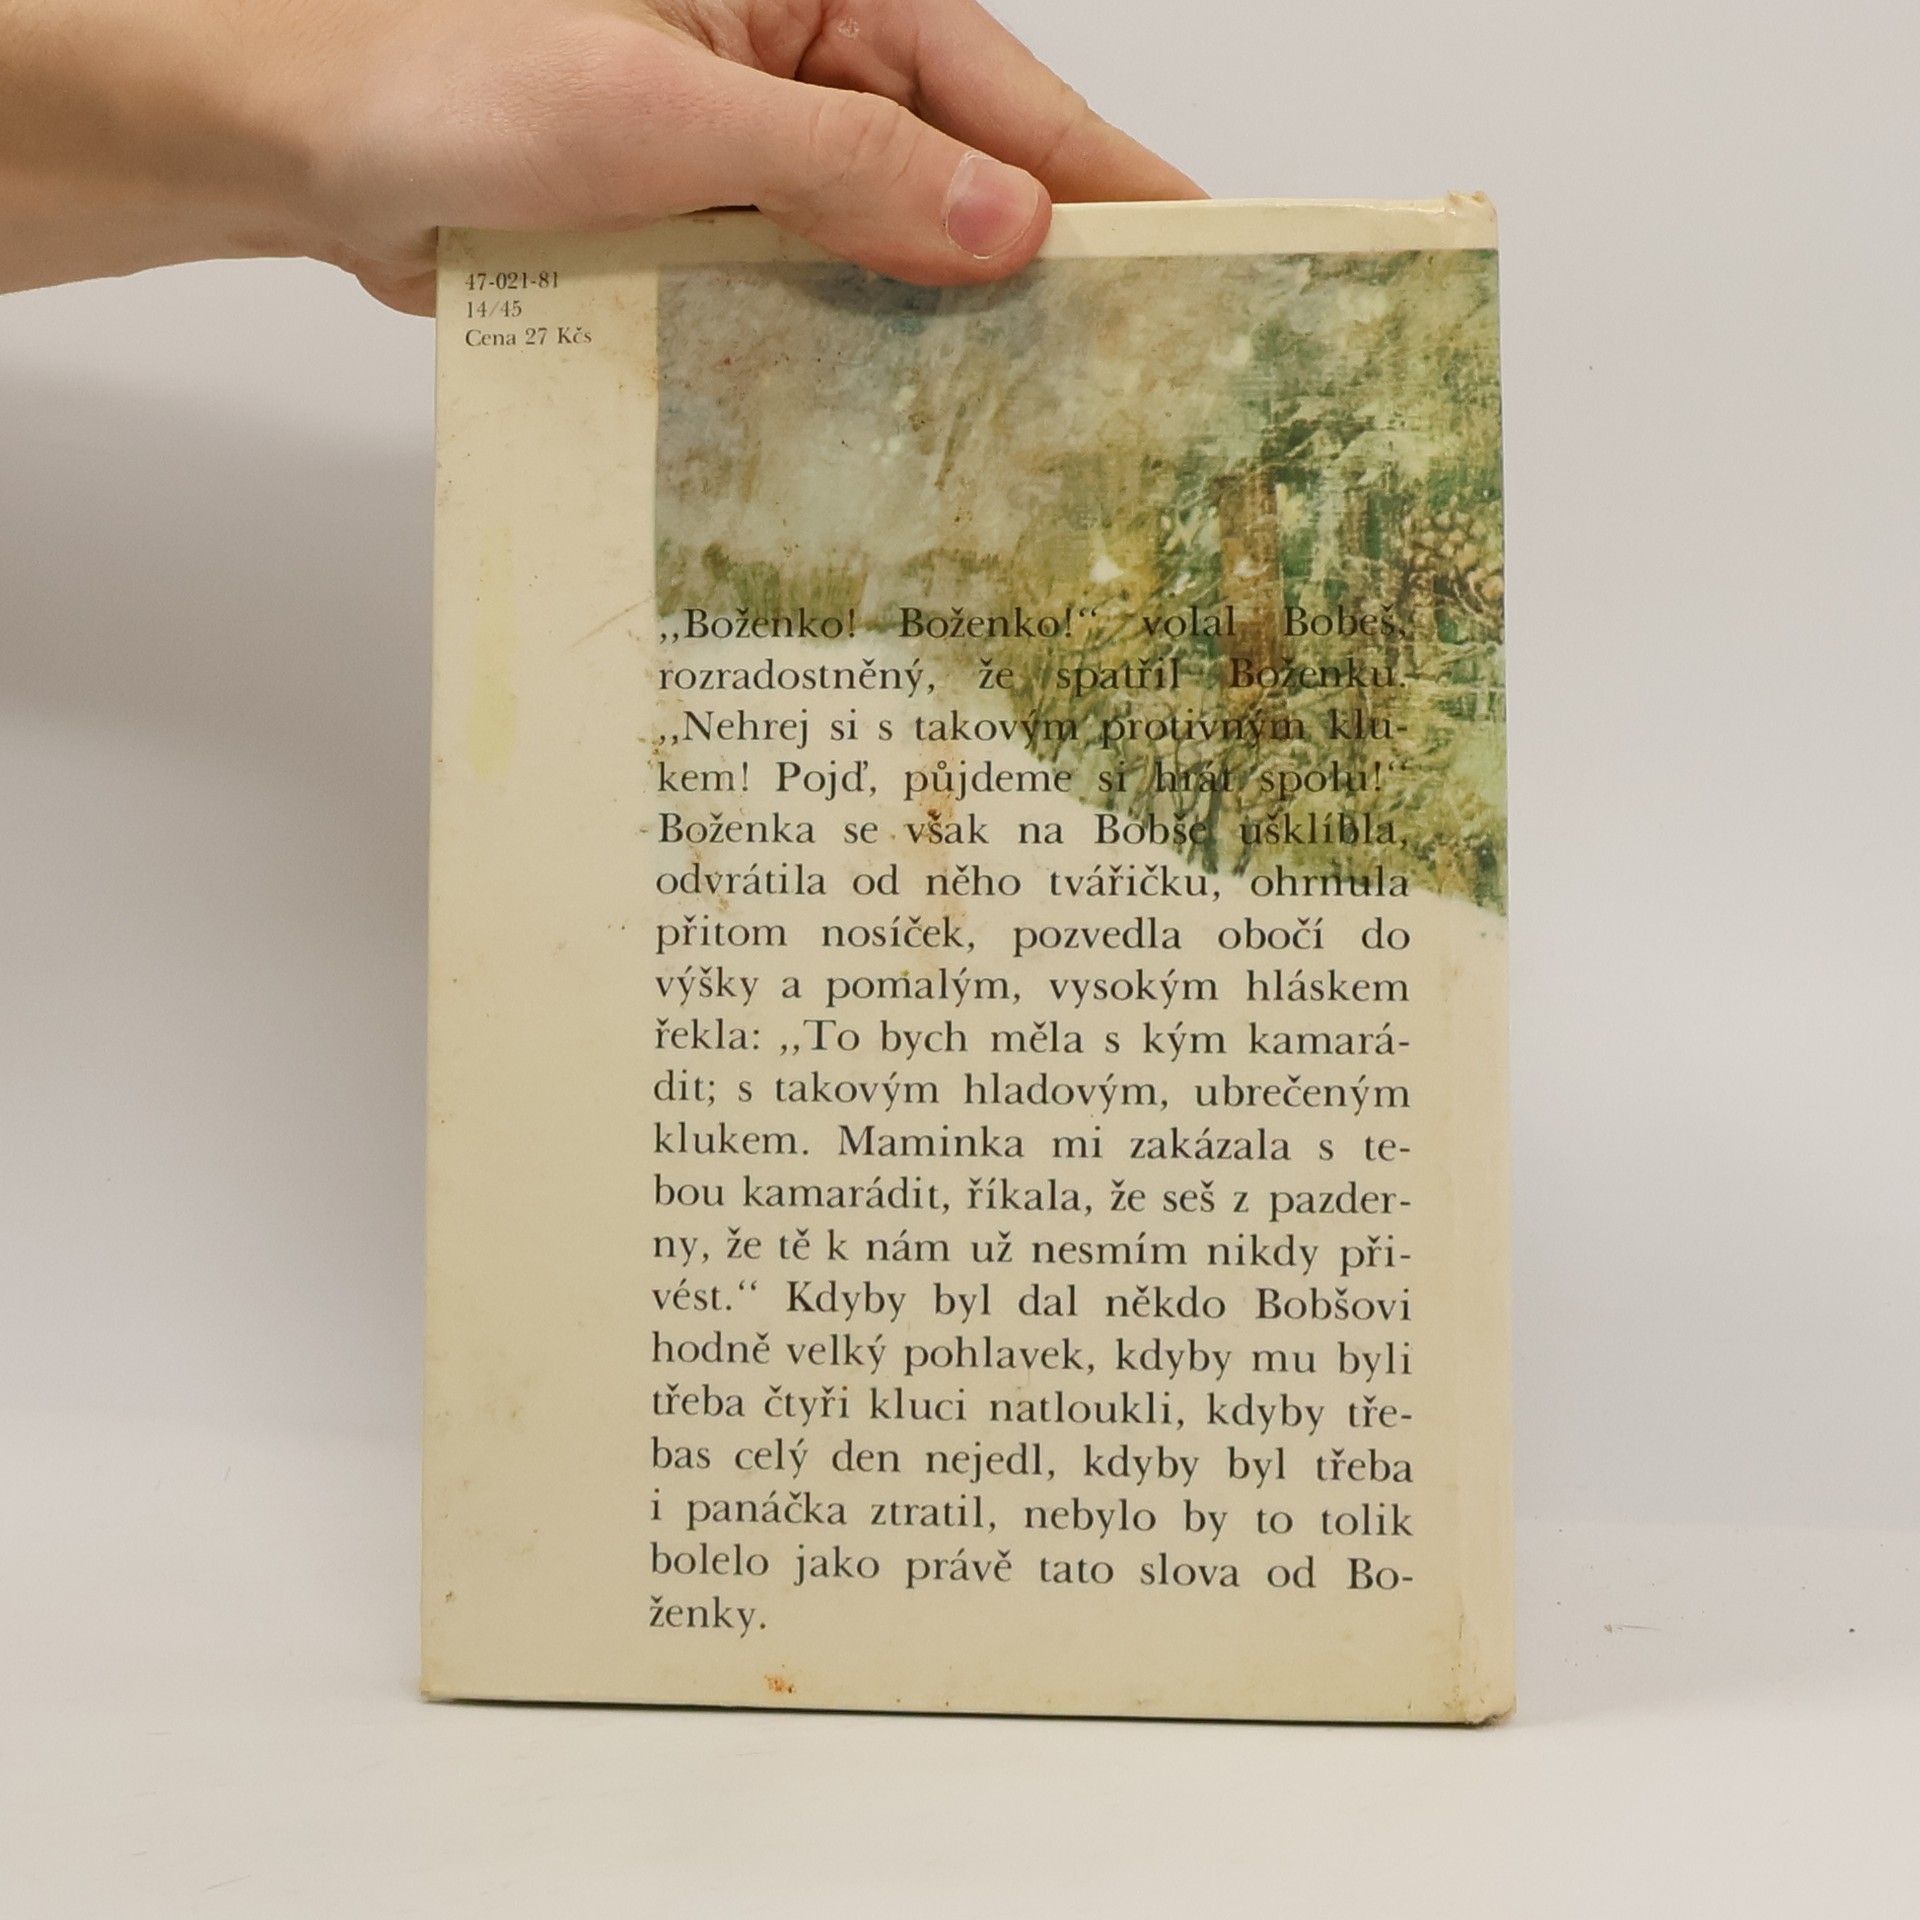 47-021-81
14/45
Cena 27 Kčs
,,Boženko! Boženko!“ volal Bobeš,
rozradostněný, že spatřil Boženku.
,,Nehrej si s takovým protivným klu-
kem! Pojď, půjdeme si hrát spolu!“
Boženka se však na Bobše ušklíbla,
odvrátila od něho tvářičku, ohrnula
přitom nosíček, pozvedla obočí do
výšky a pomalým, vysokým hláskem
řekla: ,,To bych měla s kým kamará-
dit; s takovým hladovým, ubrečeným
klukem. Maminka mi zakázala s te-
bou kamarádit, říkala, že seš z pazder-
ny, že tě k nám už nesmím nikdy při-
vést.“ Kdyby byl dal někdo Bobšovi
hodně velký pohlavek, kdyby mu byli
třeba čtyři kluci natloukli, kdyby tře-
bas celý den nejedl, kdyby byl třeba
i panáčka ztratil, nebylo by to tolik
bolelo jako právě tato slova od Bo-
ženky.